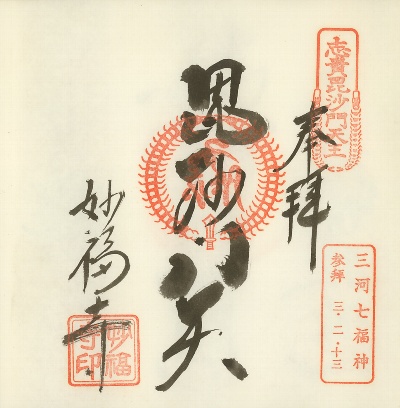 志貴毘沙門天王
奉拝
三河七福神
参拝 三・二・十三
毘沙門天
妙福寺
妙福寺印